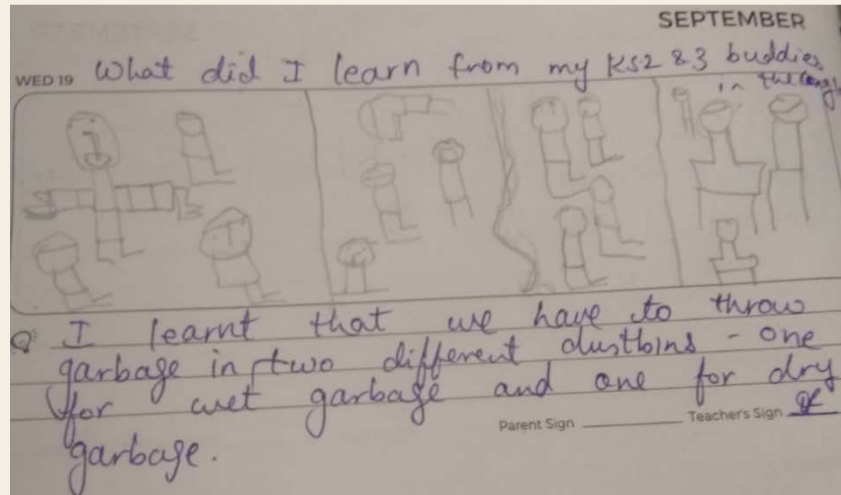 SEPTEMBER
WED 19 What did I learn from my KS2 & 3 buddies
in the
I learnt that we have to throw
garbage in two different dustbins - one
for wet garbage and one for dry
Parent Sign Teacher's Sign
garbage.